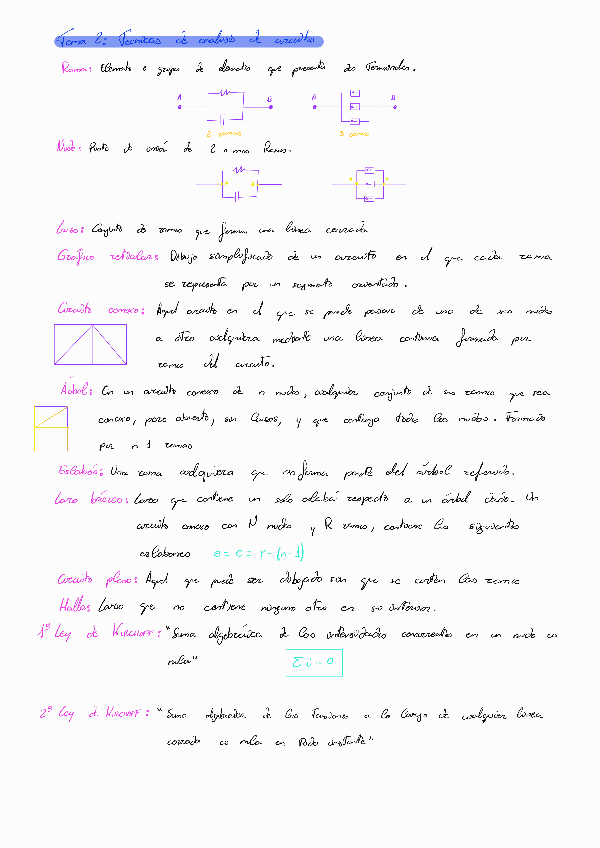 Tema 2: Técnicas de análisis de circuitos
Rama: Elemento o grupo de elementos que presenta dos Terminales.
A B A B
2 ramas 3 ramas
Nudo: Punto de unión de 2 o mas Ramas.
Lazo: Conjunto de ramas que forman una línea cerrada
Grafico reticular: Dibujo simplificado de un circuito en el que cada rama
se representa por un segmento orientado.
Circuito conexo: Aquel circuito en el que se puede pasar de uno de sus nudos
a otro cualquiera mediante una línea continua formada por
ramas del circuito.
Árbol: En un circuito conexo de n nudos, cualquier conjunto de sus ramas que sea
conexo, pero abierto, sin lazos, y que contenga todos los nudos. Formado
por n-1 ramas
Eslabón: Una rama cualquiera que no forma parte del árbol referido.
Lazo básico: Lazo que contiene un solo eslabón respecto a un árbol dado. Un
circuito conexo con N nudos y R ramas, contiene los siguientes
eslabones e = c = r - (n-1)
Circuito plano: Aquel que puede ser dibujado sin que se corten las ramas
Malla: Lazo que no contiene ninguno otro en su interior.
1ª Ley de KIRCHOFF: "Suma algebráica de las intensidades concurrentes en un nudo es
nula" Σ i = 0
2ª Ley de KIRCHOFF: "Suma algebraica de las Tensiones a lo largo de cualquier línea
cerrada es nula en todo instante".